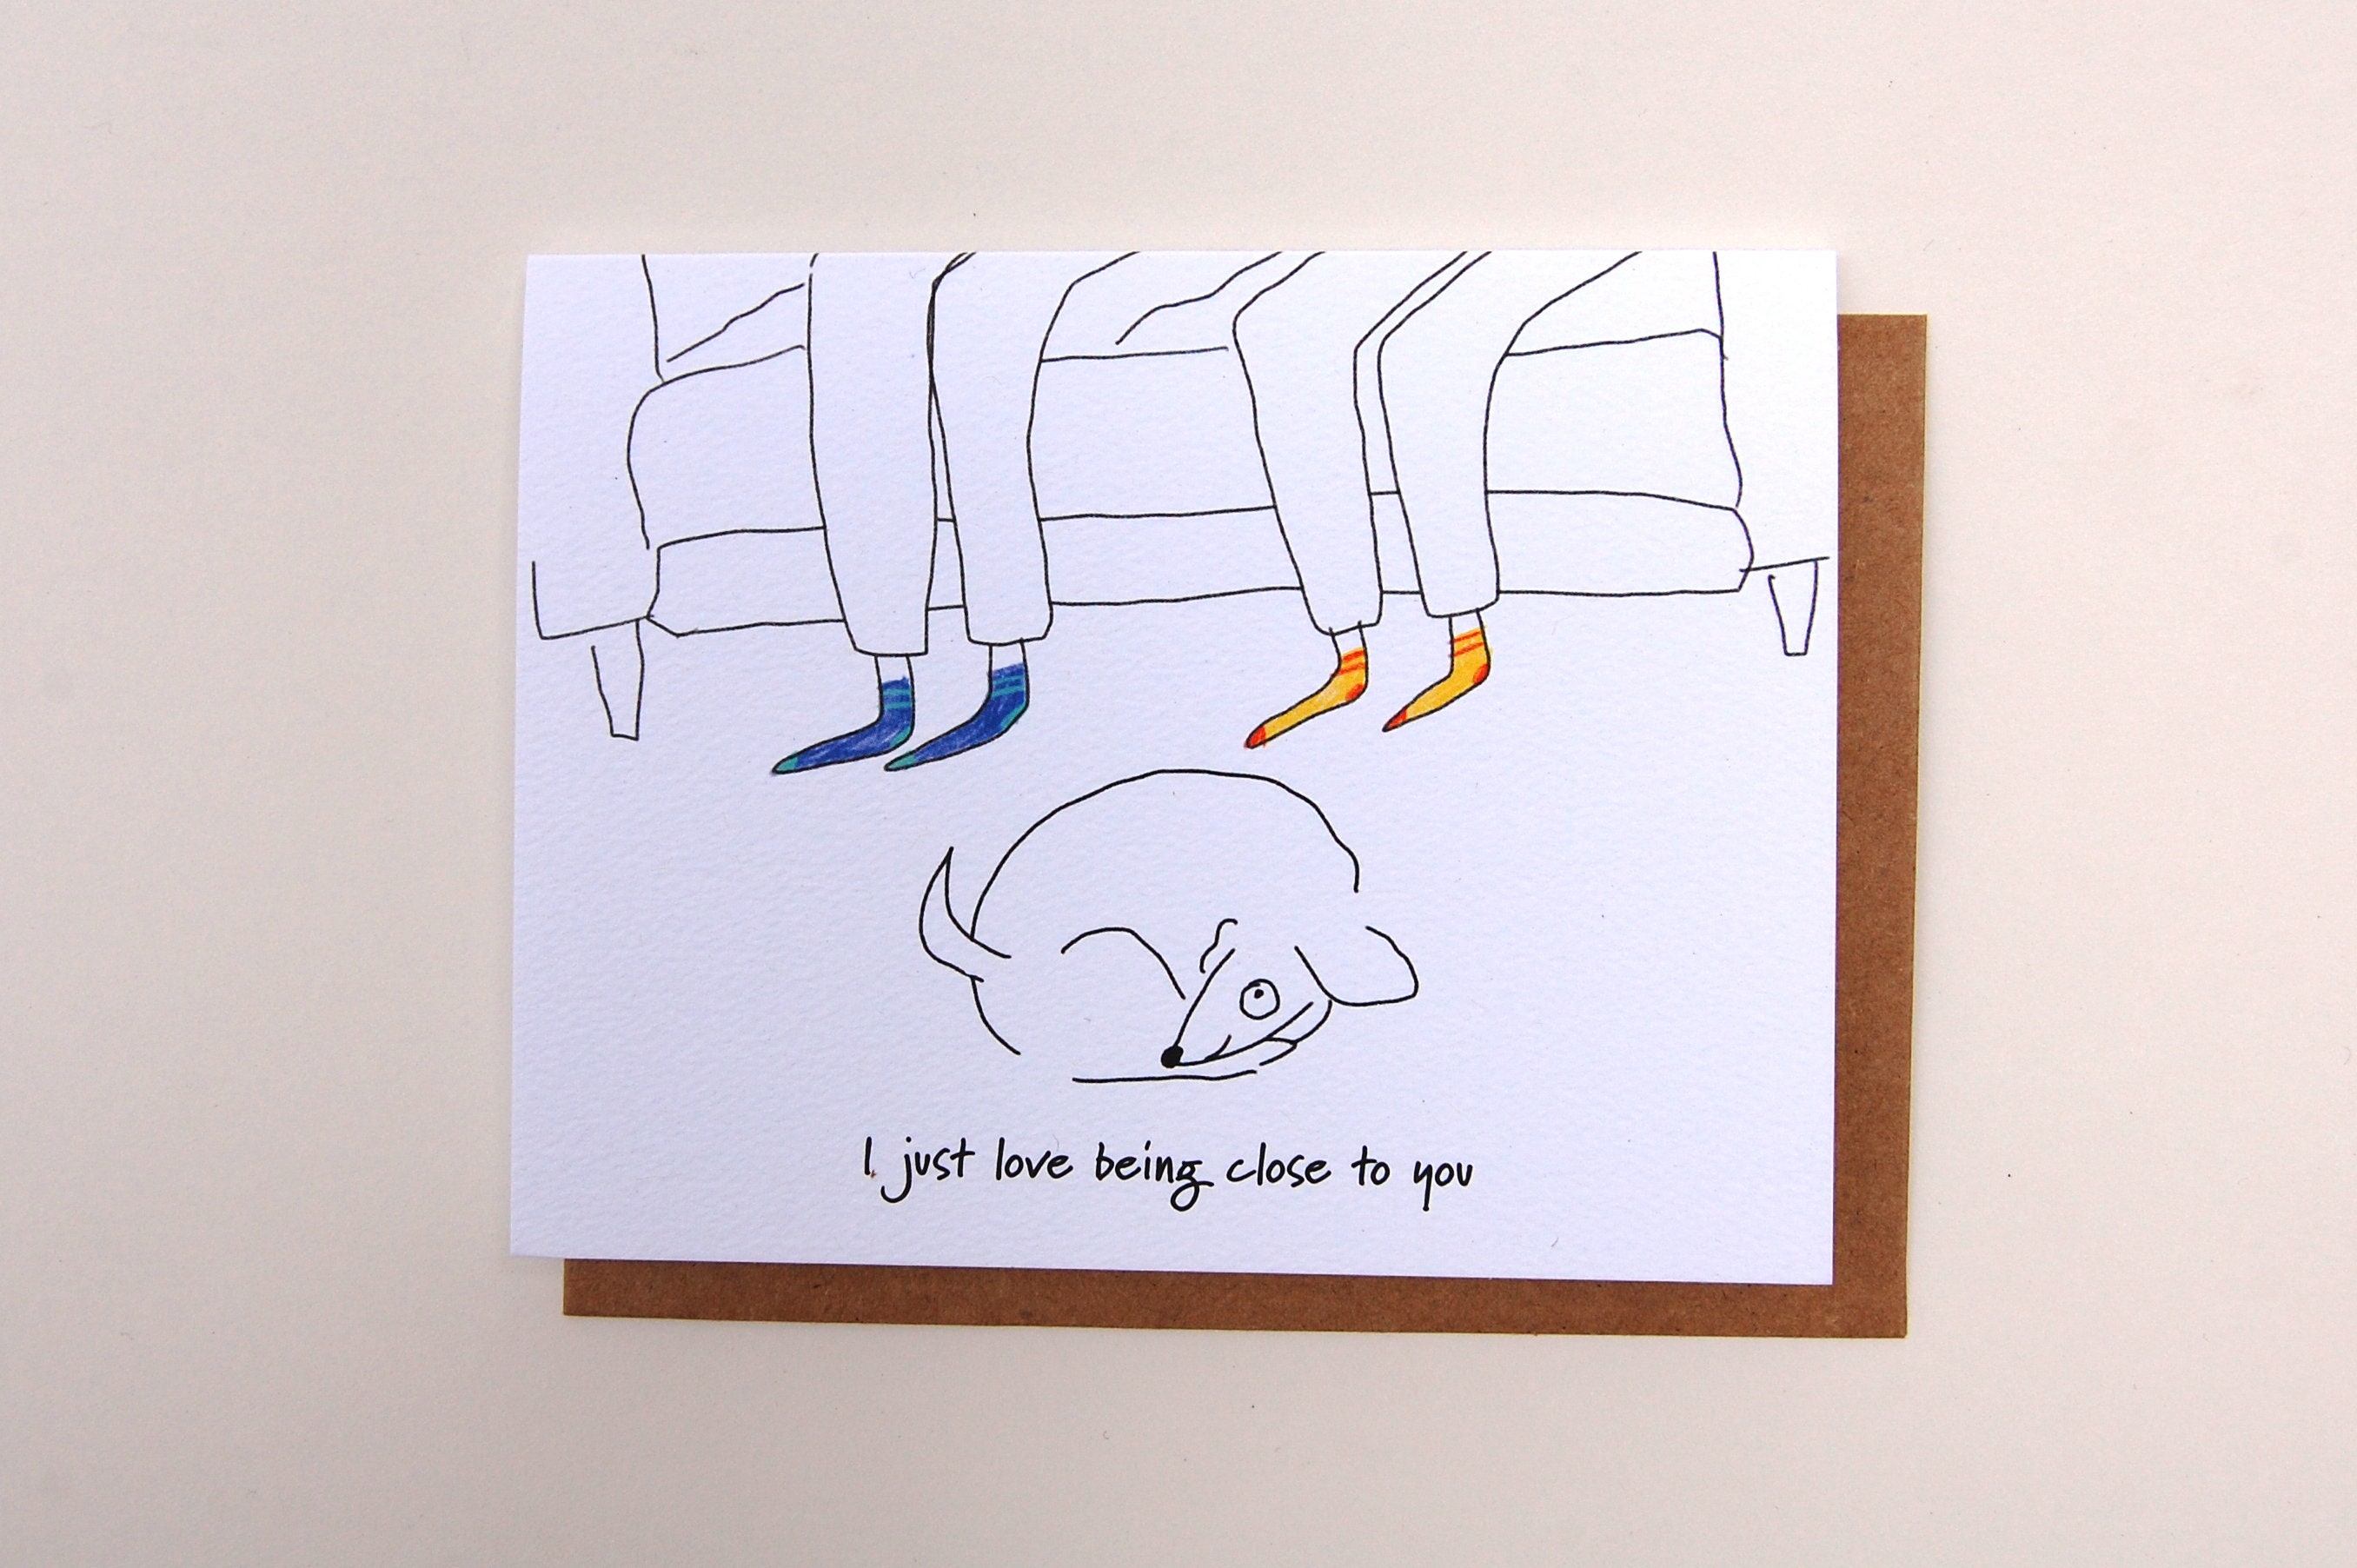 I just love being close to you